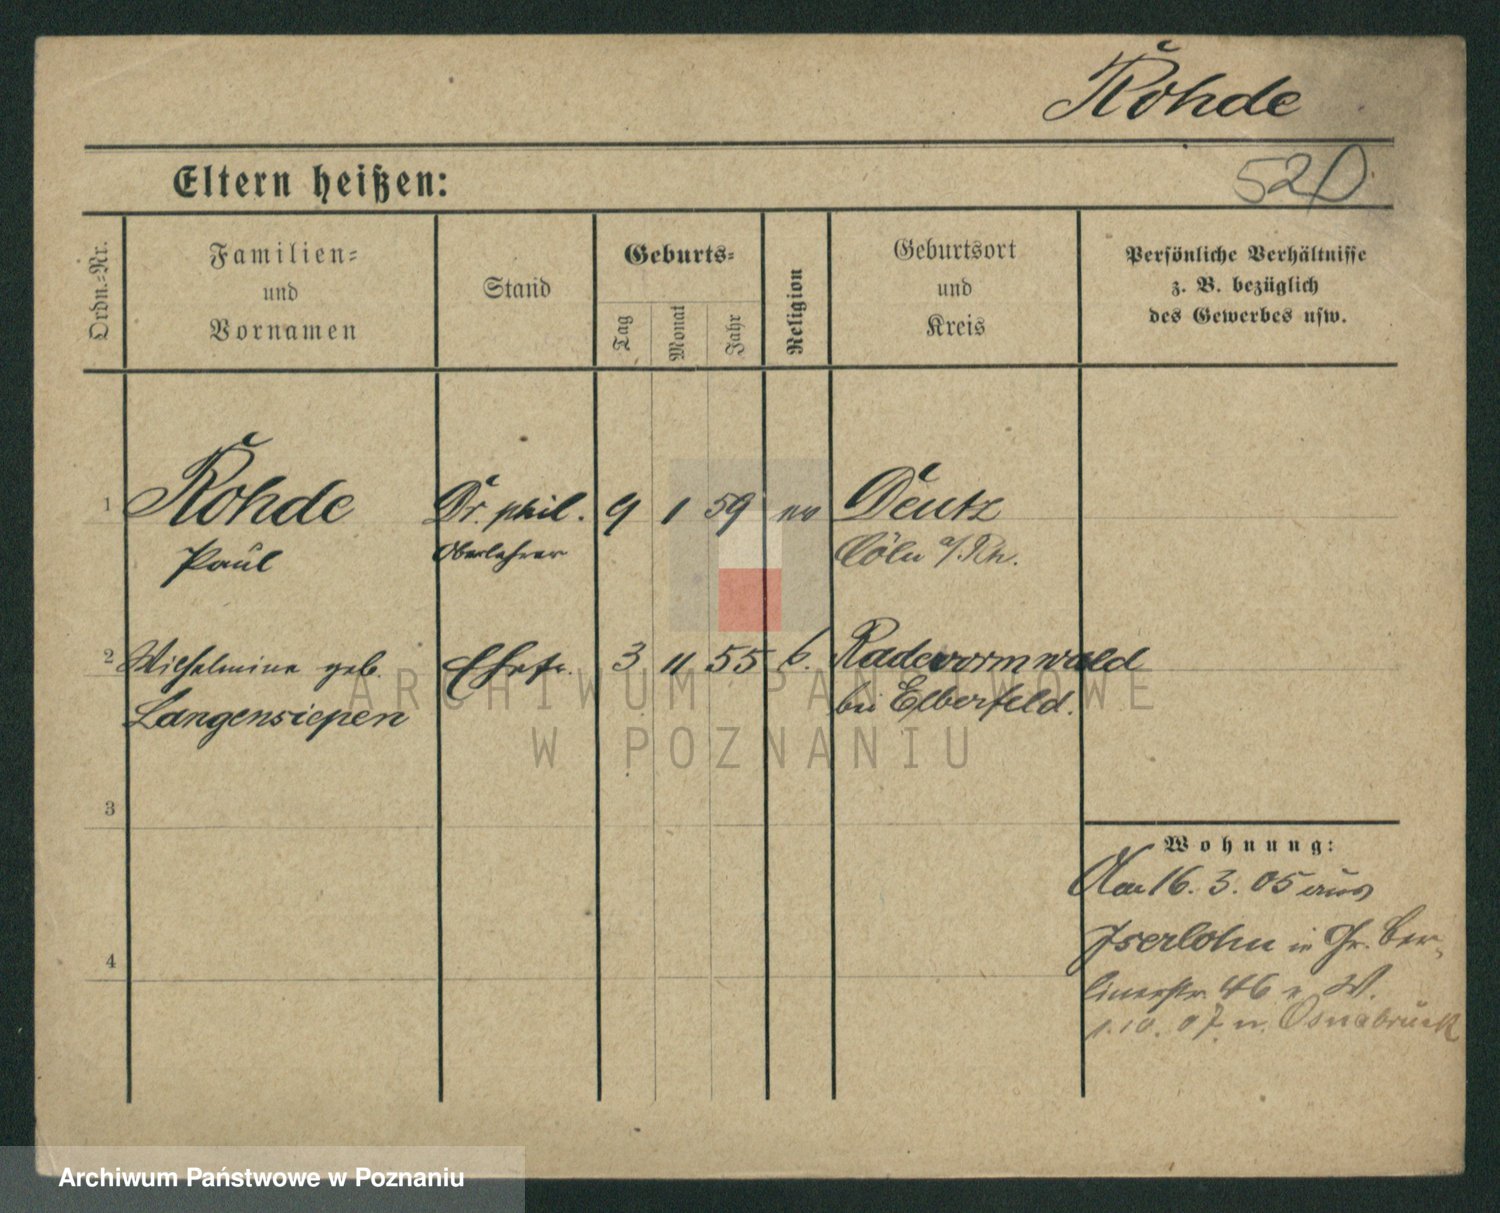 Rohde
520
Eltern heißen:
Ordn.-Nr.
Familien-
und
Vornamen
Stand
Geburts-
Tag
Monat
Jahr
Religion
Geburtsort
und
Kreis
Persönliche Verhältnisse
z. B. bezüglich
des Gewerbes usw.
1 Rohde Dr. phil. 9 1 59 ev Deutz
Paul Oberlehrer Cöln a/Rh.
2 Wilhelmine geb. Ehefr. 3 11 55 6. Radevormwald
Langensiepen bei Elberfeld.
3
4
Wohnung:
Am 16. 3. 05 aus
Iserlohn in Gr. Ber-
linerstr. 46 W.
1. 10. 07. n. Osnabrück
ARCHIWUM PAŃSTWOWE
W POZNANIU
Archiwum Państwowe w Poznaniu